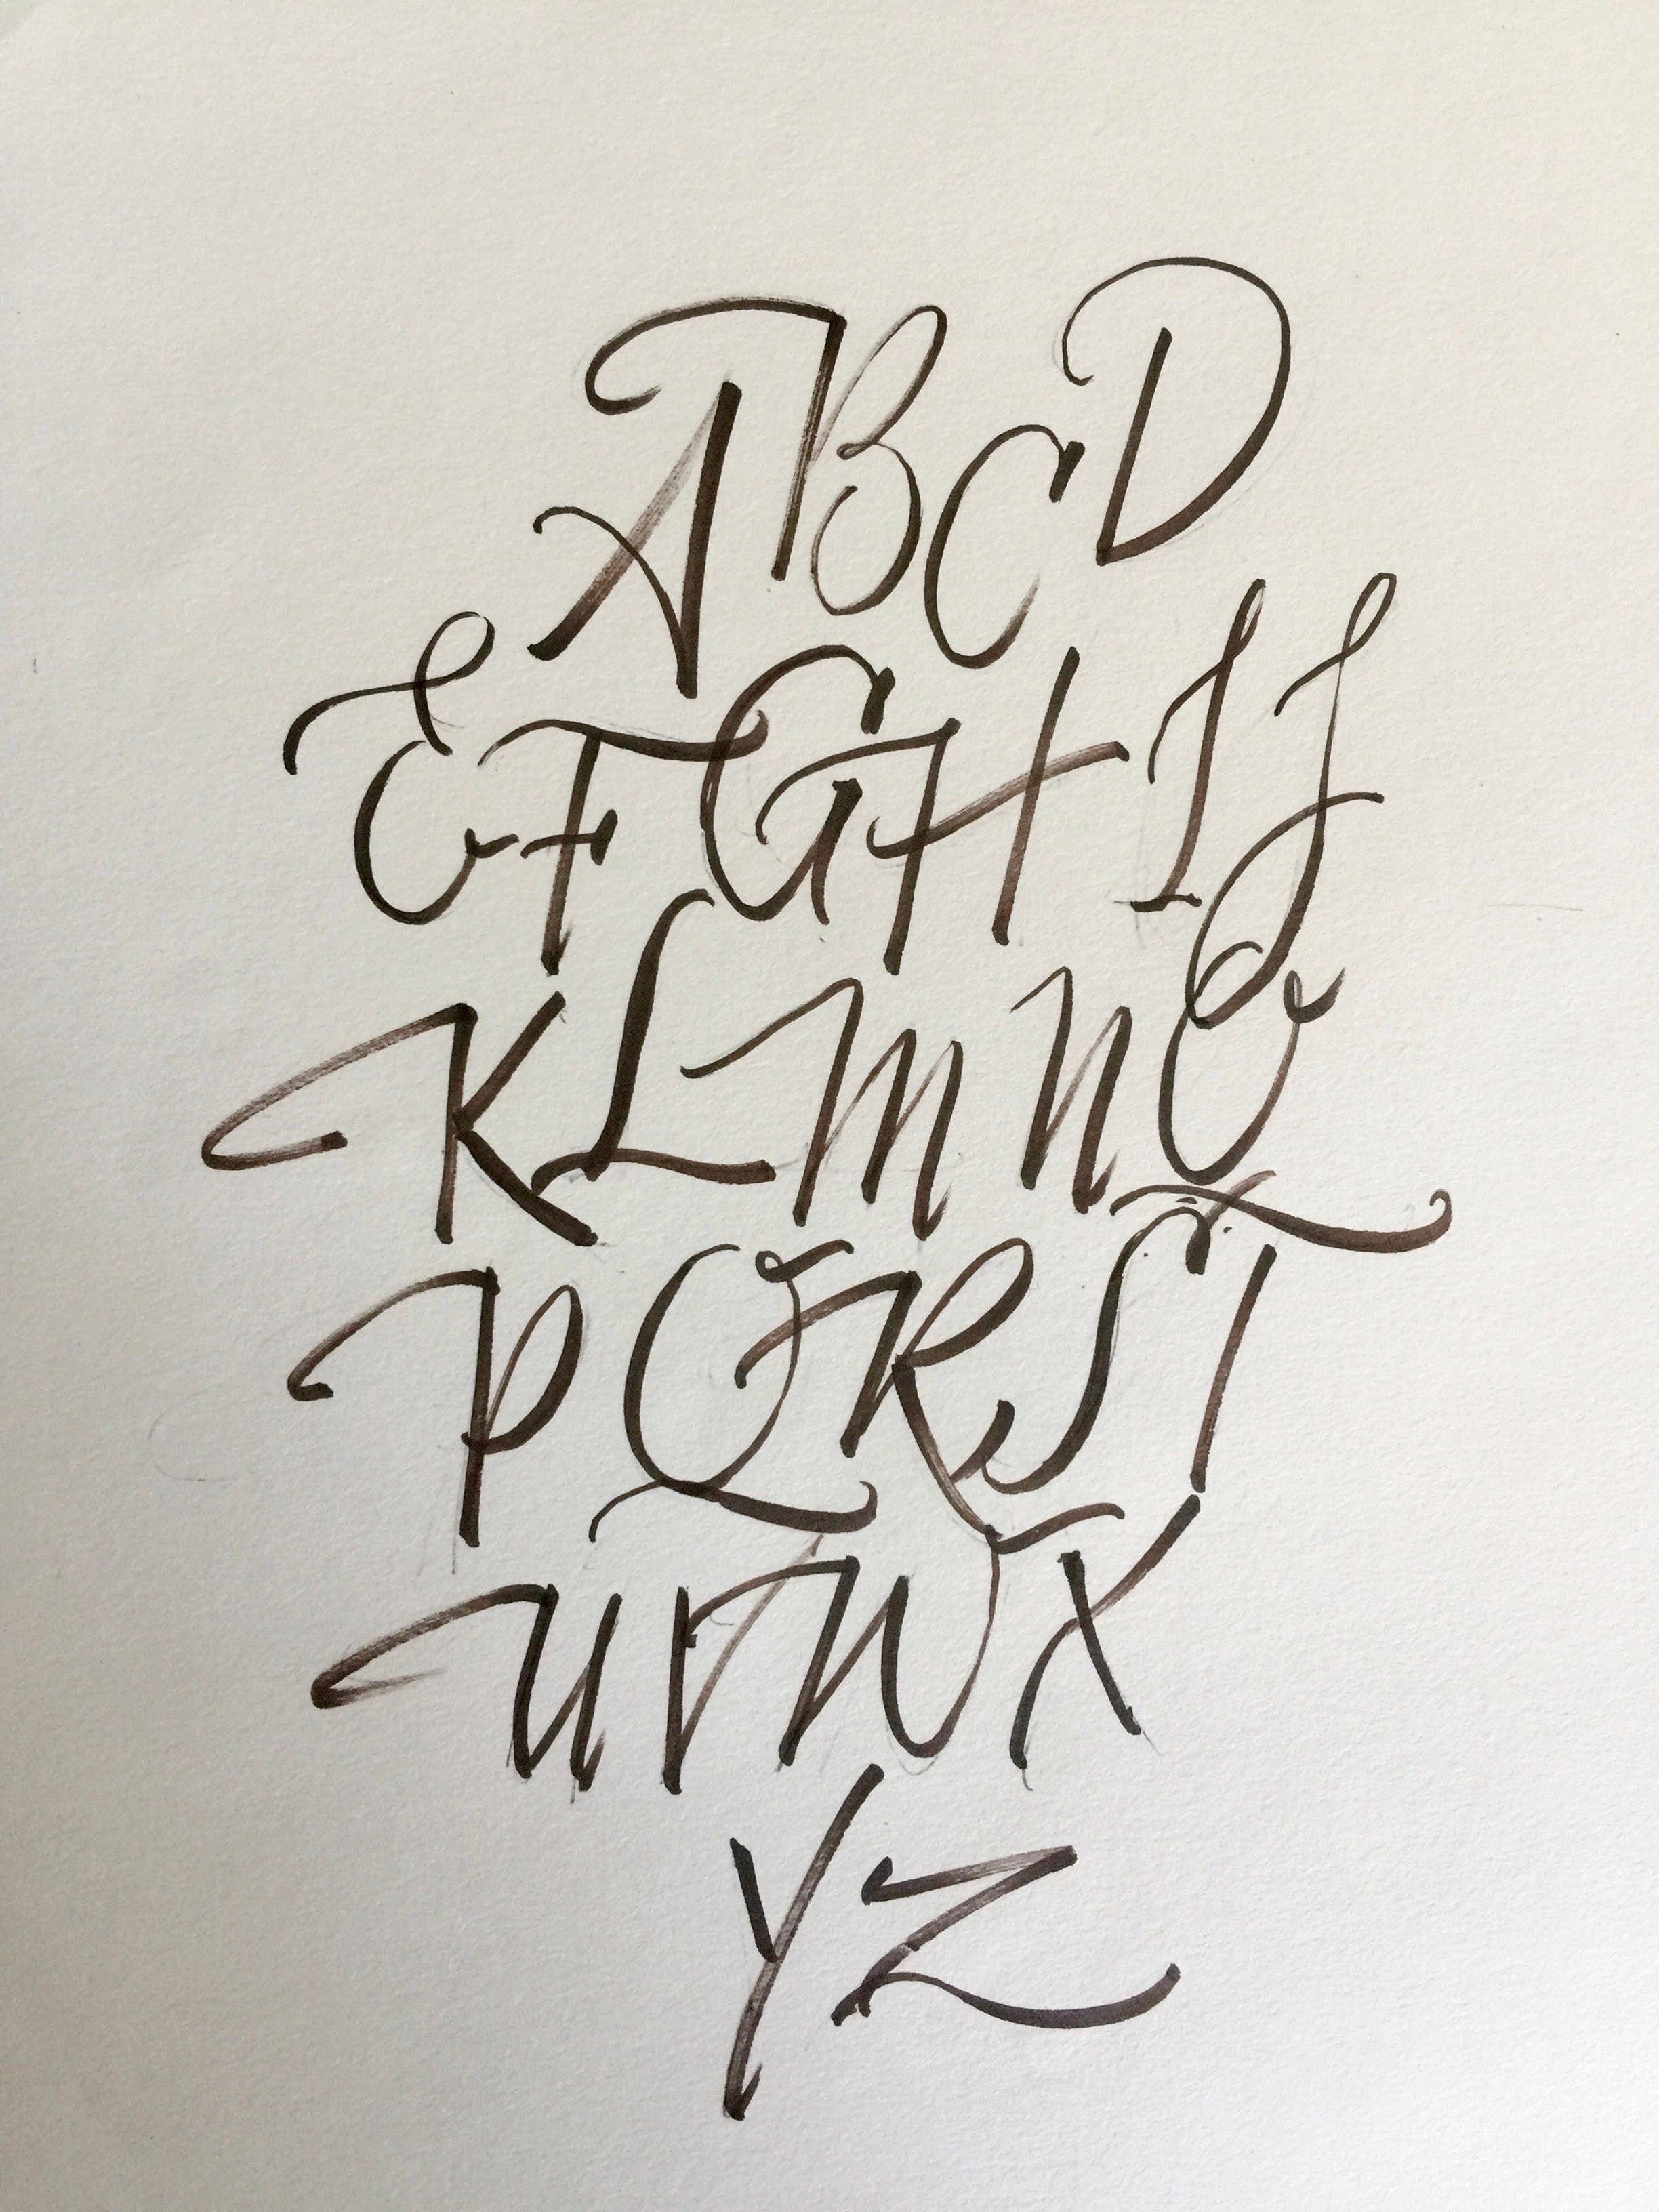 A B C D
E F G H I J
K L M N O
P Q R S T
U V W X
Y Z